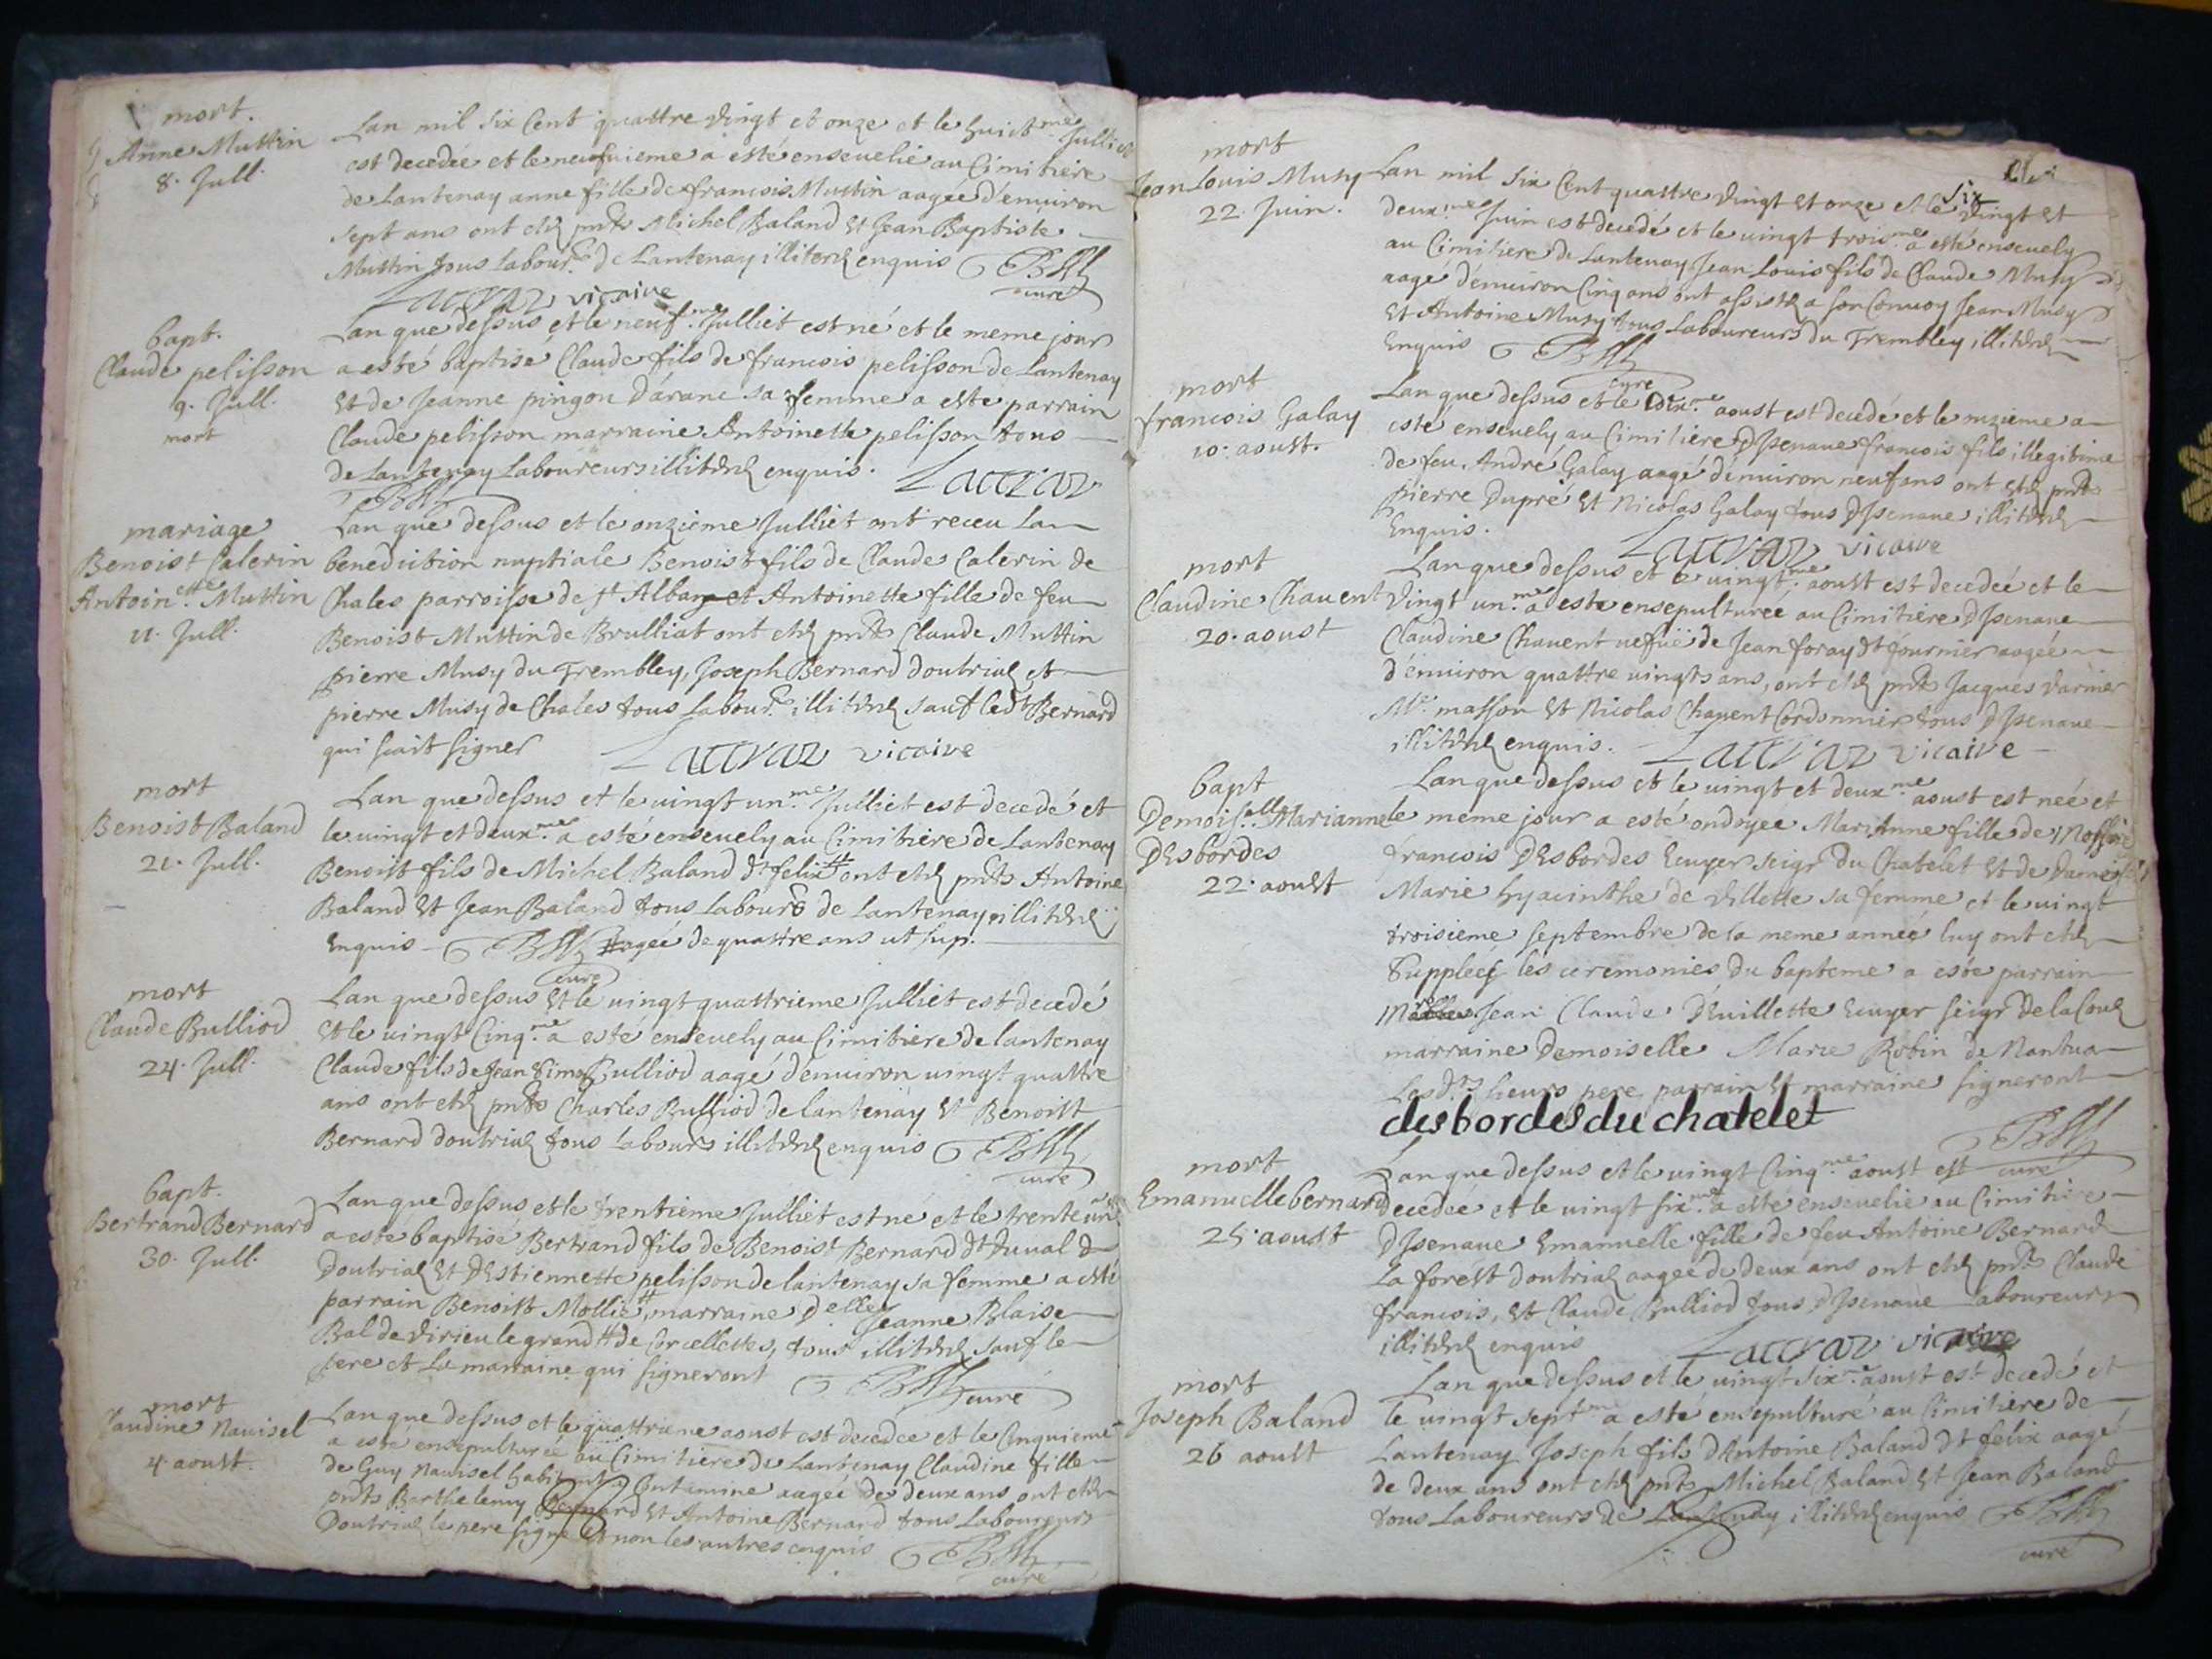 mort.
Anne Muttin
8. Jull.
Lan mil six Cent quattre vingt et onze et le huict.me Julliet
est decedée et le neufuieme a esté enseuelie au Cimitiere
de Lantenay anne fille de francois Muttin aagée d'enuiron
sept ans ont etez pnts Michel Baland et Jean Baptiste
Muttin tous labour.s de Lantenay illiterez enquis
curé
Lacraz vicaire
bapt.
Claude pelisson
9. Jull.
mort
Lan que dessus et le neuf.me Julliet est né et le meme jour
a esté baptisé Claude fils de francois pelisson de Lantenay
et de Jeanne pingon d'arane sa femme a este parrain
Claude pelisson marraine Antoinette pelisson tous
de Lantenay Laboureurs illiterez enquis. Lacraz
mariage
Benoist Calerin
Antoin.ette Muttin
11. Jull.
Lan que dessus et le onzieme Julliet ont receu la
benediction nuptiale Benoist fils de Claude Calerin de
Chales parroisse de st Alban et Antoinette fille de feu
Benoist Muttin de Brulliat ont etez pnts Claude Muttin
pierre Musy du Trembley, Joseph Bernard doutriaz et
pierre Musy de Chales tous labour.s illiterez sauf ledt Bernard
qui scait signer Lacraz vicaire
mort
Benoist Baland
21. Jull.
Lan que dessus et le uingt un.me Julliet est decedé et
le uingt et deux.me a esté enseuely au Cimitiere de Lantenay
Benoist fils de Michel Baland dt felix # ont etez pnts Antoine
Baland et Jean Baland tous labours de Lantenay illiterez
enquis # agée de quattre ans ut sup.
curé
mort
Claude Bulliod
24. Jull.
Lan que dessus et le uingt quattrieme Julliet est decedé
et le uingt Cinq.me a esté enseuely au Cimitiere de lantenay
Claude fils de Jean Bulliod aagé d'enuiron uingt quattre
ans ont etez pnts Charles Bulliod de lantenay et Benoist
Bernard doutriaz tous labours illiterez enquis
curé
bapt.
Bertrand Bernard
30. Jull.
Lan que dessus et le trentieme Julliet est né et le trente un
a esté baptisé Bertrand fils de Benoist Bernard dt duual
Doutriaz et d'Estiennette pelisson de lantenay sa femme a esté
parrain Benoist Mollie #, marraine Delle Jeanne Blaise
Bal de virieu le grand # de Corcellettes, tous illiterez sauf le
pere et la marraine qui signeront
curé
mort
Claudine Nauisel
4. aoust.
Lan que dessus et le quattrieme aoust est decedée et le Cinquieme
a esté ensepulturée au Cimitiere de Lantenay Claudine fille
de Guy Nauisel habitant a Contamine aagée de deux ans ont etez
pnts Barthelemy Bernard et Antoine Bernard tous Laboureurs
Doutriaz le pere signe et non les autres enquis
curé
six
mort
Jean Louis Musy
22. Juin.
Lan mil six Cent quattre vingt et onze et le vingt et
deux.me Juin est decedé et le uingt trois.me a esté enseuely
au Cimitiere de Lantenay Jean Louis fils de Claude Musy
aagé d'enuiron Cinq ans ont assistez a son Conuoy Jean Musy
et Antoine Musy tous Laboureurs du Trembley illiterez
enquis
curé
mort
francois Galay
10. aoust.
Lan que dessus et le dix.me aoust est decedé et le onzieme a
esté enseuely au Cimitiere d'Isenaue francois fils illegitime
de feu André Galay aagé d'enuiron neuf ans ont etez pnts
pierre Dupré et Nicolas Galay tous d'Isenaue illiterez
enquis. Lacraz vicaire
mort
Claudine Chauent
20. aoust
Lan que dessus et le uingt.me aoust est decedée et le
vingt un.me a este ensepulturée au Cimitiere d'Isenaue
Claudine Chauent uefue de Jean foray dt fournier aagée
d'enuiron quattre uingts ans, ont etez pnts Jacques varnier
Me masson et Nicolas Chauent Cordonnier tous d'Isenaue
illiterez enquis. Lacraz vicaire
bapt
Demois.elle Marianne
DEsbordes
22. aoust
Lan que dessus et le uingt et deux.me aoust est née et
le meme jour a esté ondoyee Marianne fille de Messire
francois DEsbordes Ecuyer seigr du Chatelet et de Damoiselle
Marie hyacinthe de villette sa femme et le uingt
troisieme septembre de la meme année luy ont etez
Suppleés les ceremonies du bapteme a esté parrain
Jean Claude DEuillette Ecuyer seigr de la Couz
marraine Demoiselle Marie Robin de Nantua
Lesdts sieurs pere, parrain et marraine signeront
desbordes du chatelet
curé
mort
Emanuelle bernard
25. aoust
Lan que dessus et le uingt Cinq.me aoust est
decedée et le uingt six.me a este enseuelie au Cimitiere
d'Isenaue Emanuelle fille de feu Antoine Bernard
La forest doutriaz aagée de deux ans ont etez pnts Claude
francois, et Claude Bulliod tous d'Isenaue Laboureurs
illiterez enquis Lacraz vicaire
mort
Joseph Baland
26 aoust
Lan que dessus et le uingt six.e aoust est decedé et
le uingt sept.me a esté ensepulturé au Cimitiere de
Lantenay Joseph fils d'Antoine Baland dt felix aagé
de deux ans ont etez pnts Michel Baland et Jean Baland
tous Laboureurs de Lantenay illiterez enquis
curé